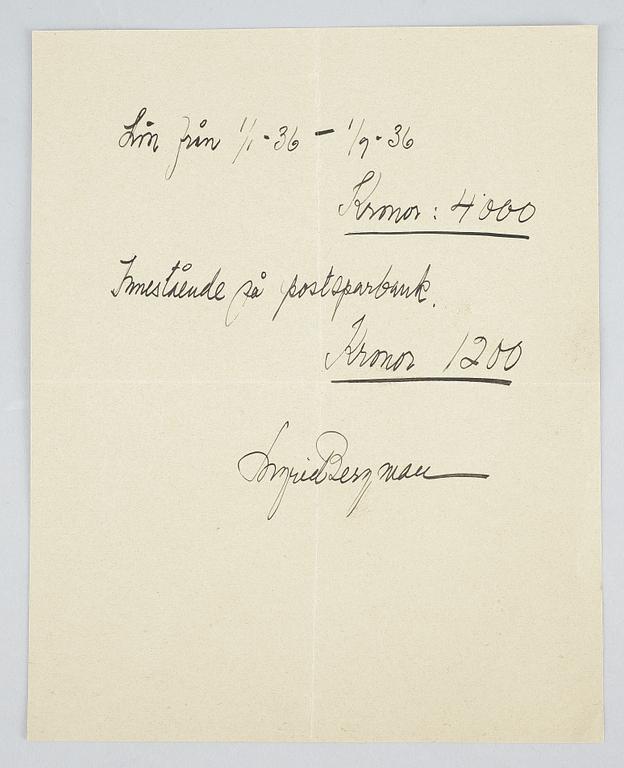 Lön från 1/1-36 — 1/9-36
Kronor: 4000
Innestående på postsparbank.
Kronor 1200
Ingrid Bergman